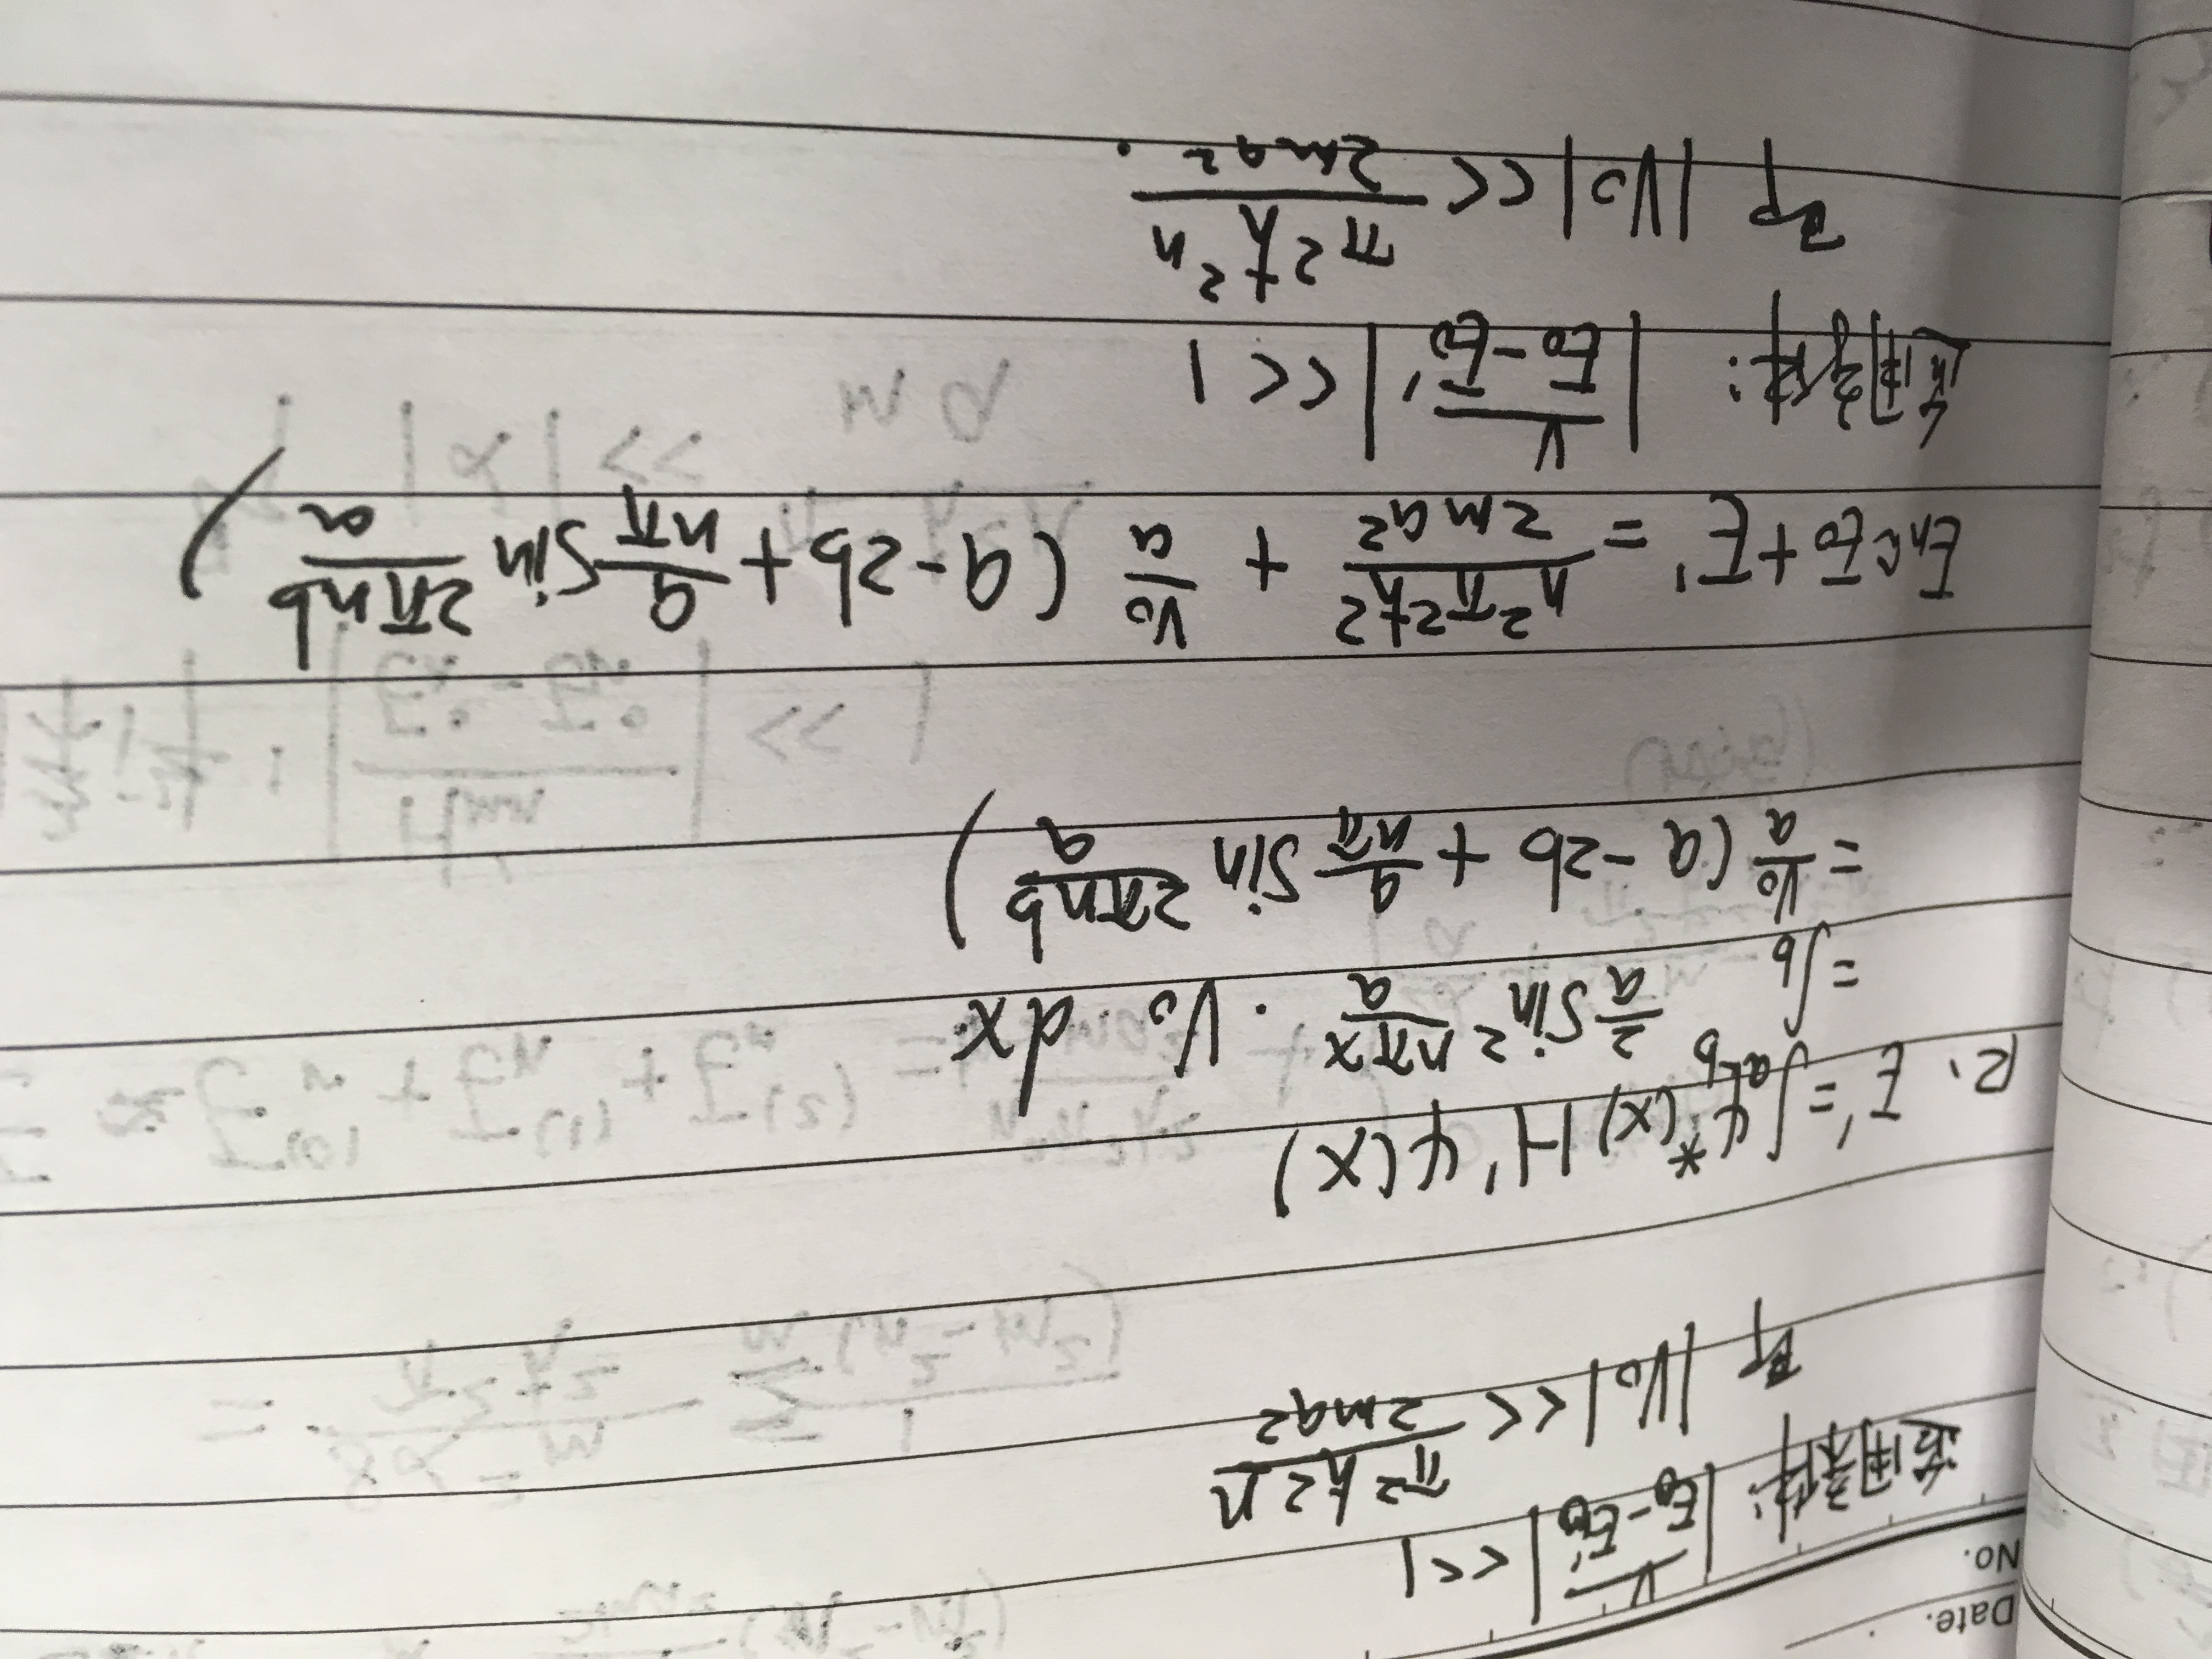 Date.
No.
适用条件: |V/(E₀-E₀')| << 1
即 |V₀| << π²ħ²n/2ma²
2、 E' = ∫ψ*(x) H'ψ(x)
= ∫_b^{a-b} 2/a sin² nπx/a · V₀ dx
= V₀/a (a - 2b + a/nπ sin 2πnb/a)
Eₙ≈E₀+E' = n²π²ħ²/2ma² + V₀/a (a - 2b + a/nπ sin 2πnb/a)
适用条件: |V/(E₀-E₀')| << 1
即 |V₀| << π²ħ²n/2ma².